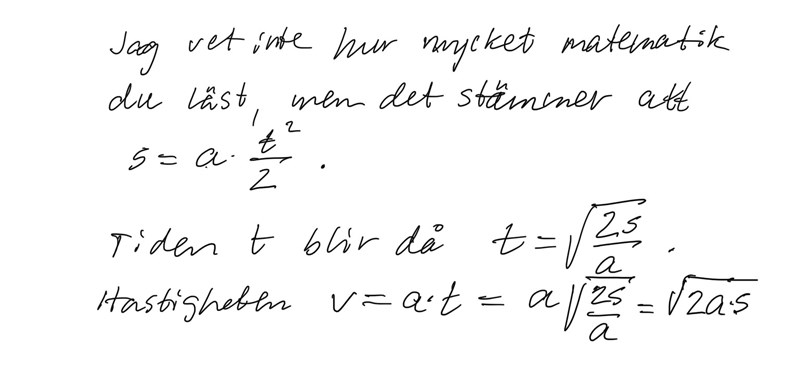 Jag vet inte hur mycket matematik
du läst, men det stämmer att
s = a · t²/2 .
Tiden t blir då t = √(2s/a) .
Hastigheten v = a·t = a√(2s/a) = √(2a·s)